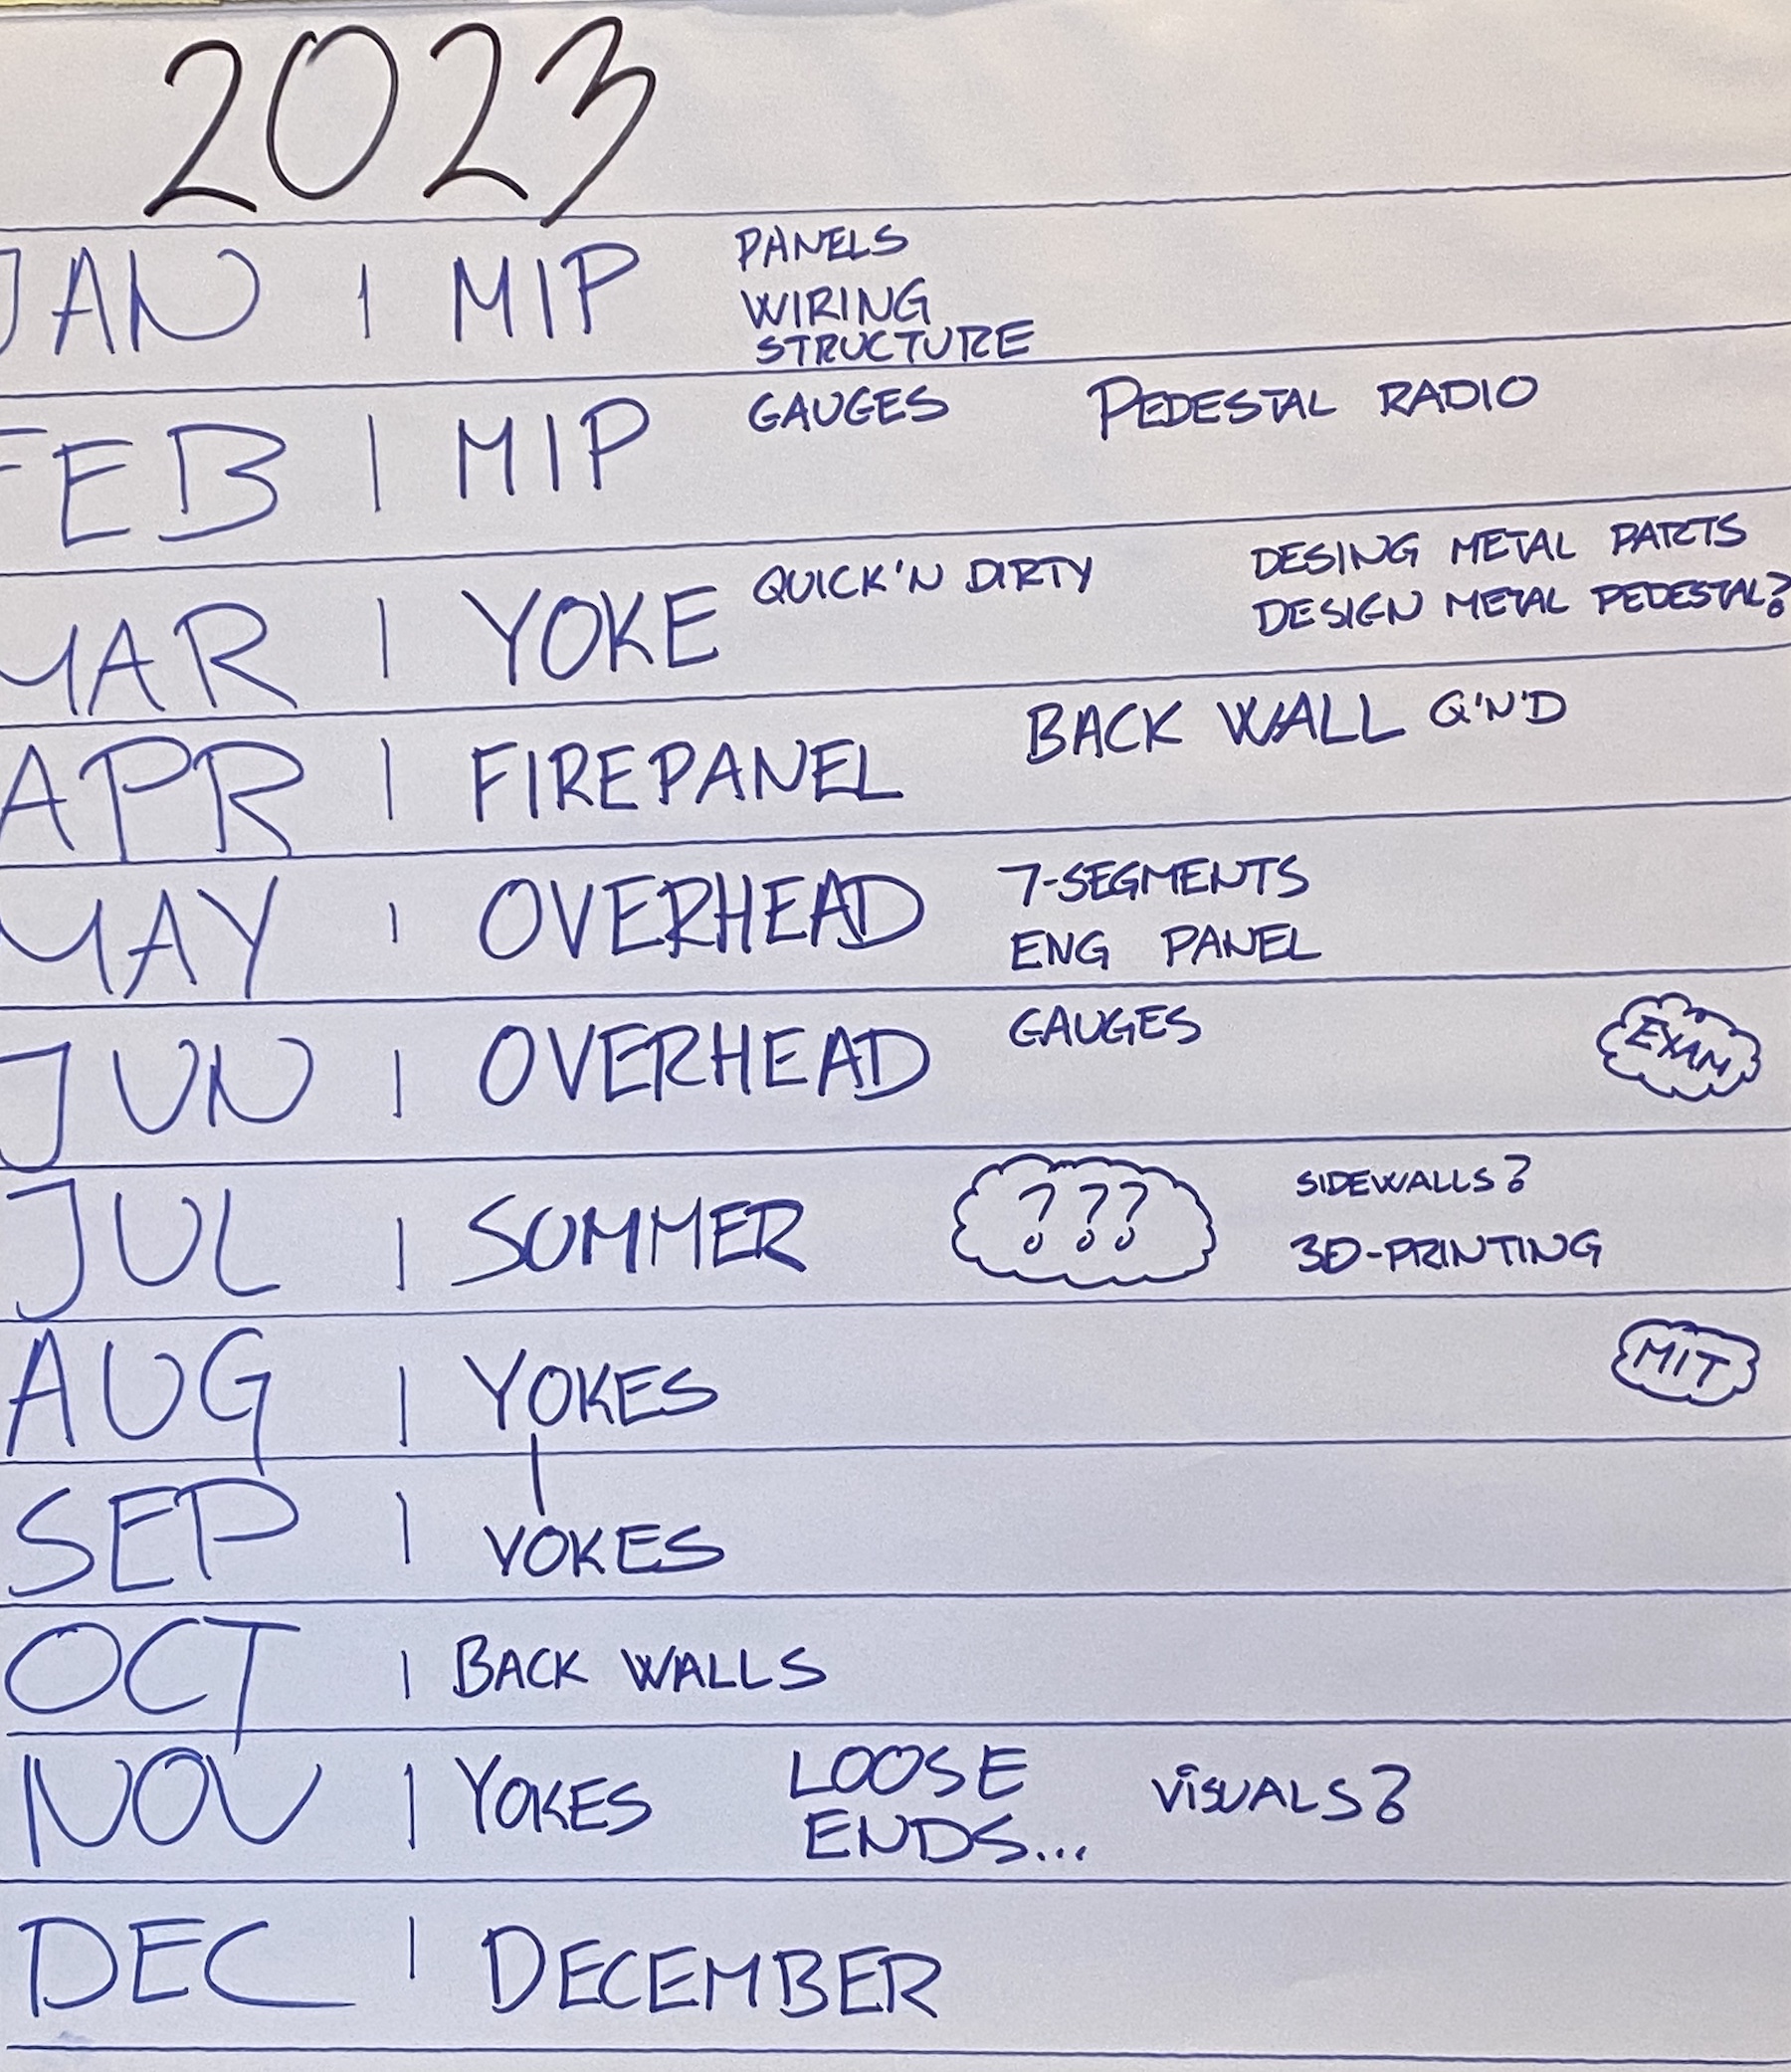 2023
JAN | MIP PANELS
WIRING
STRUCTURE
FEB | MIP GAUGES PEDESTAL RADIO
MAR | YOKE QUICK'N DIRTY DESING METAL PARTS
DESIGN METAL PEDESTAL?
APR | FIREPANEL BACK WALL Q'N'D
MAY | OVERHEAD 7-SEGMENTS
ENG PANEL
JUN | OVERHEAD GAUGES EXAM
JUL | SOMMER ??? SIDEWALLS?
3D-PRINTING
AUG | YOKES MIT
SEP | YOKES
OCT | BACK WALLS
NOV | YOKES LOOSE ENDS... VISUALS?
DEC | DECEMBER